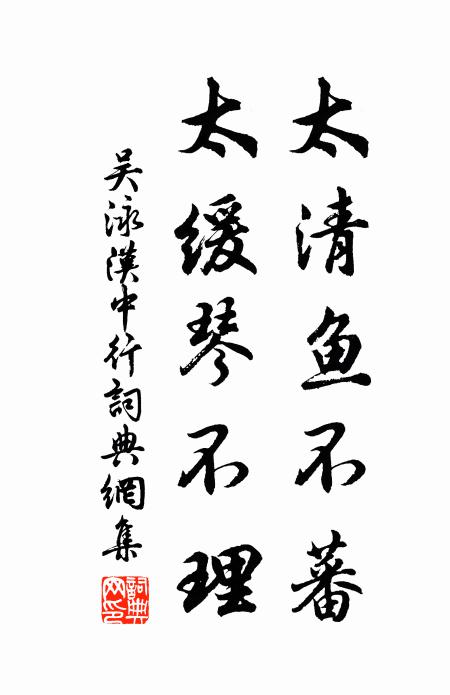 太清鱼不蕃
太缓琴不理
吴泳漢中行詞典網集
詞典網印